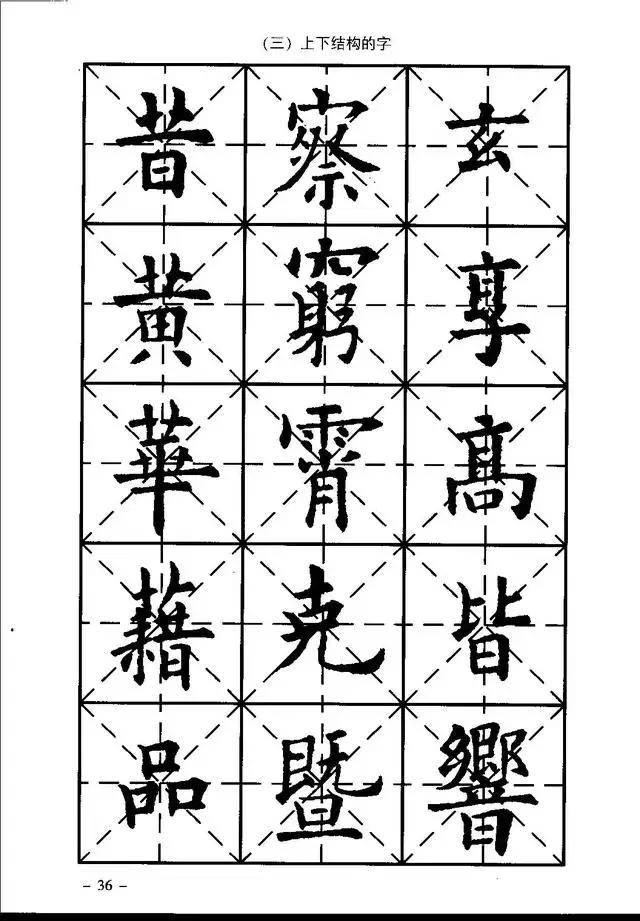 （三）上下结构的字
玄享高皆響
察窮霄尭暨
昔黄華藉品
- 36 -